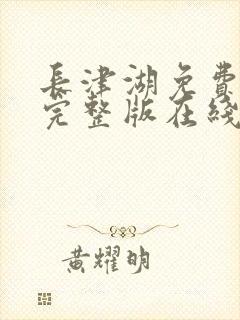 長津湖免費
完整版在綫
黃耀明